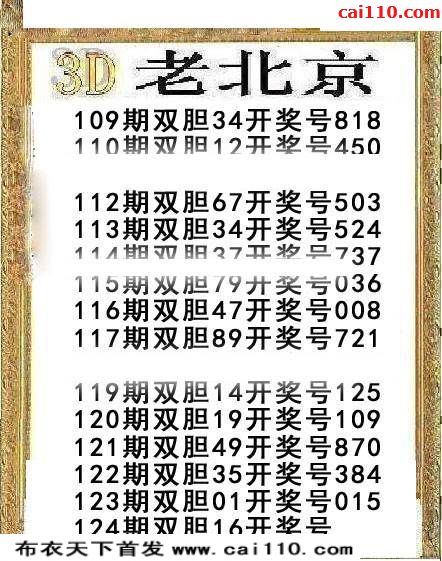 cai110.com
3D 老北京
109期双胆34开奖号818
110期双胆12开奖号450
112期双胆67开奖号503
113期双胆34开奖号524
114期双胆37开奖号737
115期双胆79开奖号036
116期双胆47开奖号008
117期双胆89开奖号721
119期双胆14开奖号125
120期双胆19开奖号109
121期双胆49开奖号870
122期双胆35开奖号384
123期双胆01开奖号015
124期双胆16开奖号
布衣天下首发 www.cai110.com